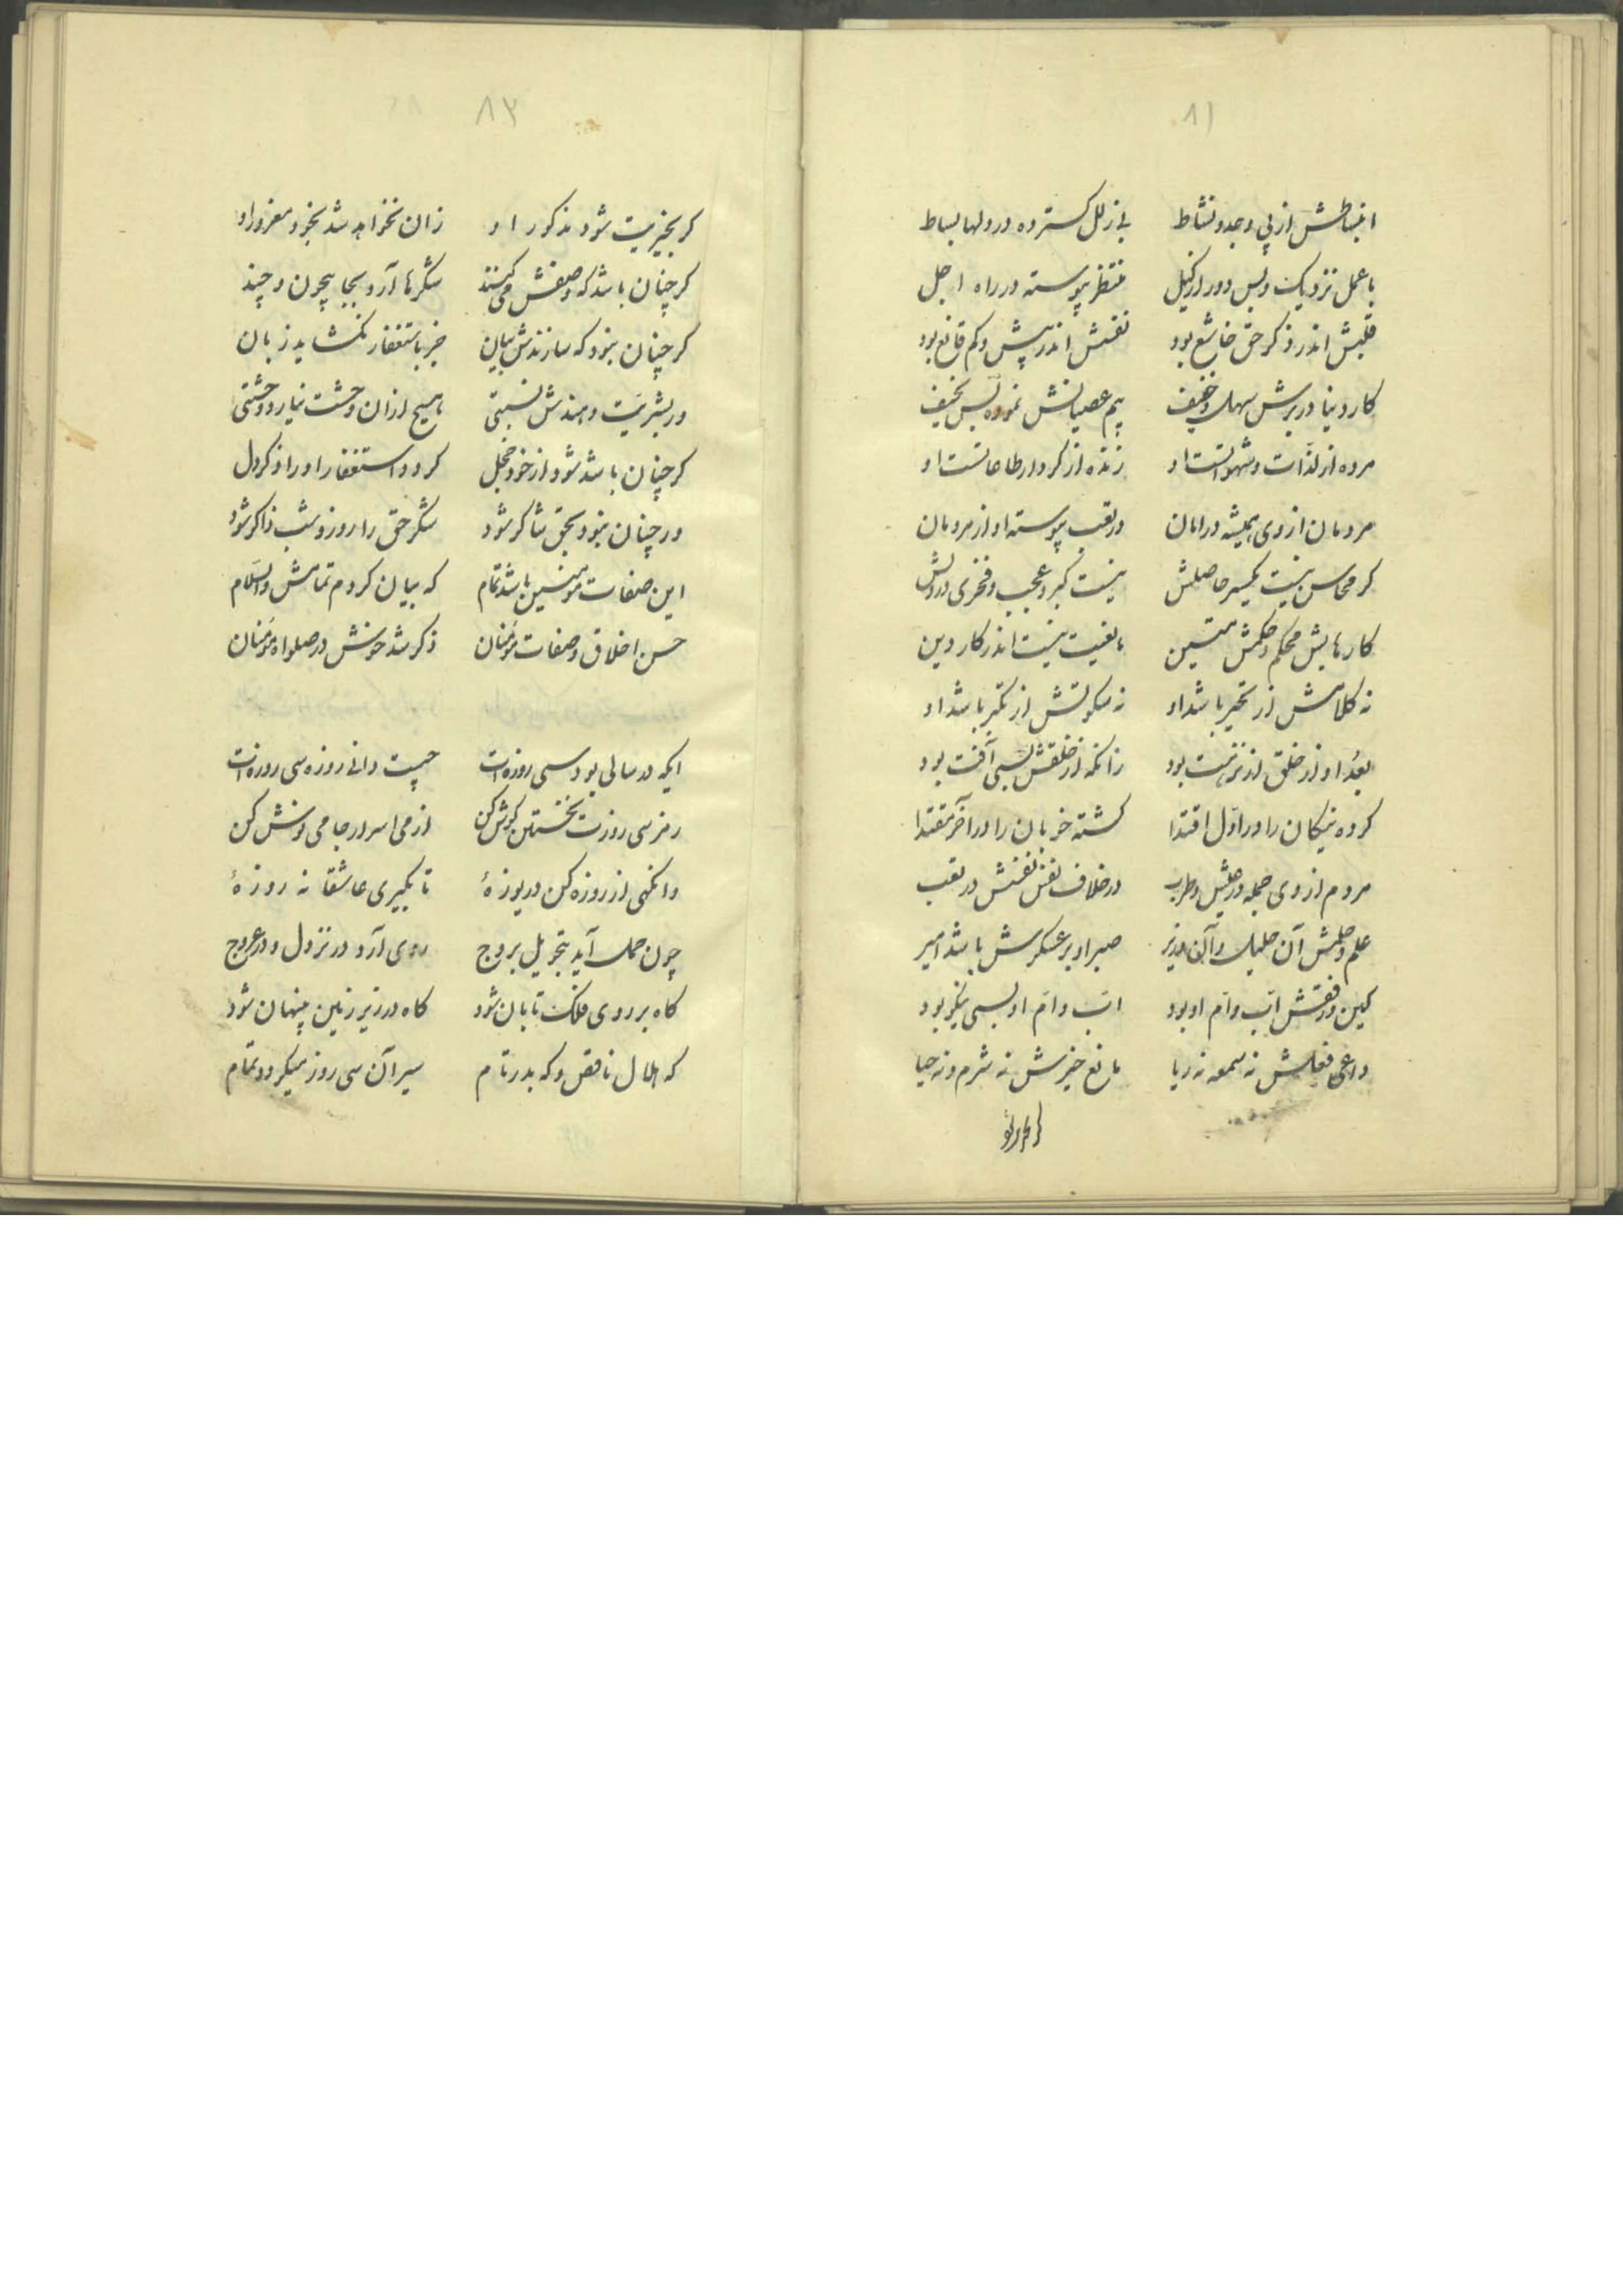 ۸۱
انبساطش از پی وجد و نشاط بی زلل گسترده در دلها بساط
با عمل نزدیک و بس دور از منتظر پیوسته در راه اجل
قلبش اندر ذکر حق خاشع بود نفسش اندر پیش و کم قانع بود
کار دنیا در برش سهل و خفیف بیم عصیانش نموده بس نحیف
مرده از لذات و شهوات او زنده از کردار طاعاتست او
مردمان از وی همیشه در امان در تعب پیوسته او از مردمان
کر محاسن نیست یکسر حاصلش نیست کبر و عجب و فخری در دلش
کارهایش محکم و حکمش متین مانعیت نیست اندر کار دین
نه کلامش از تحیر باشد او نه سکوتش از تکبر باشد او
بعد او از خلق از نزهت بود زانکه از خلقش بسی آفت بود
کرده نیکان را در اول اقتدا گشته خوبان را در آخر مقتدا
مردم از وی جمله در عیش و طرب در خلاف نفس نفسش در تعب
علم و حلمش آن خلیل و آن وزیر صبر او بر عسکرش باشد امیر
لین و رفقش اب و ام او بود اب و ام او بسی نیکو بود
داعی فعلش نه سمعه نه ریا مانع خیرش نه شرم و نه حیا
۸۲
کر بخیریت شود مذکور او زان نخواهد شد بخود مغرور او
کر چنان باشد که وصفش می کنند شکرها آرد بجا بیچون و چند
کر چنان نبود که سازندش بیان جز باستغفار نگشاید زبان
ور بشریت دهندش نسبتی هیچ از آن وحشت نیارد وحشتی
کر چنان باشد شود از خود خجل کرد استغفار او را ذکر دل
ور چنان نبود بحق شاکر شود شکر حق را روز و شب ذاکر شود
این صفات مؤمنین باشد تمام که بیان کردم تمامش والسلام
حسن اخلاق و صفات مؤمنان ذکر شد خوش در صلواه مؤمنان
ایکه در سالی بود سی روزه‌ات چیست دانی روزه سی روزه‌ات
رمز سی روزت نخستین گوش کن از می اسرار جامی نوش کن
وانگهی از روزه کن دریوزهٔ تا بگیری عاشقانه روزهٔ
چون حمل آید بتحویل بروج روی آرد در نزول و در عروج
کاه بر روی فلک تابان شود کاه در زیر زمین پنهان شود
که هلال ناقص و که بدر تام سیر آن سی روز میگردد تمام